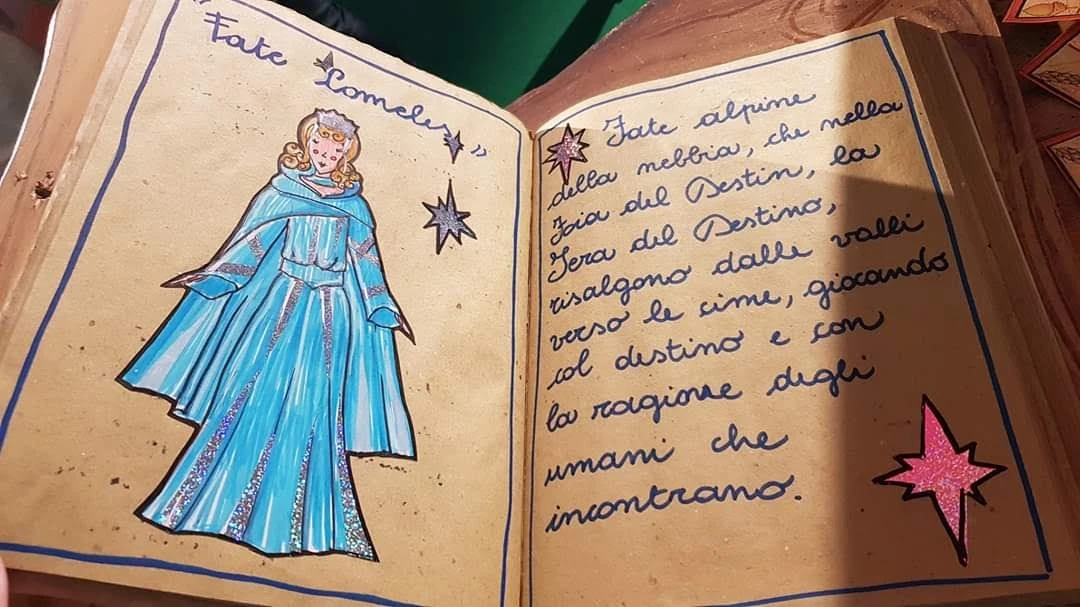 "Fate Comeles"
Fate alpine
della nebbia, che nella
Joia del Destin, la
Sera del Destino,
risalgono dalle valli
verso le cime, giocando
col destino e con
la ragione degli
umani che
incontrano.